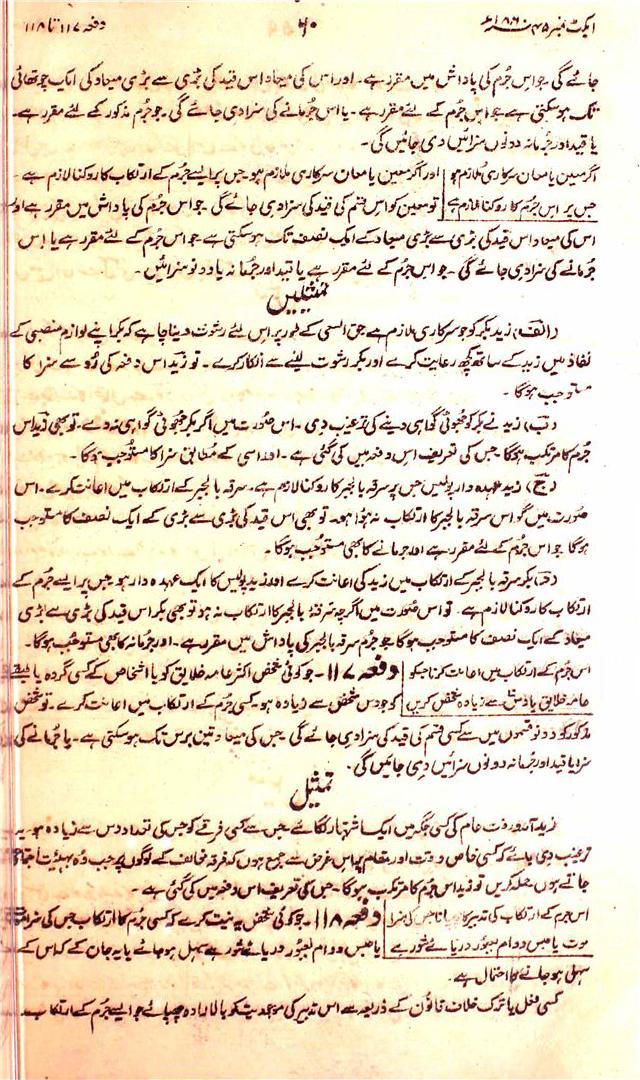 ایکٹ نمبر ۴۵ ۱۸۶۰ء
۶۰
دفعہ ۱۱۷ تا ۱۱۸
جائے گی۔ جو اس جُرم کی پاداش میں مقرر ہے۔ اور اس کی میعاد اس قید کی بڑی سے بڑی میعاد کی ایک چوتھائی
تک ہوسکتی ہے جو اس جُرم کے لئے مقرر ہے۔ یا اس جُرمانے کی سزا دی جائے گی۔ جو جُرم مذکور کے لئے مقرر ہے۔
یا قید اور جُرمانہ دونوں سزائیں دی جائیں گی۔
اگر معین یا معان سرکاری مُلازم ہو
جس پر اس جُرم کا روکنا لازم ہے
اور اگر معین یا معان سرکاری مُلازم ہو جس پر ایسے جُرم کے ارتکاب کا روکنا لازم ہے۔
تو معین کو اس قسم کی قید کی سزا دی جائے گی۔ جو اس جُرم کی پاداش میں مقرر ہے اور
اس کی میعاد اس قید کی بڑی سے بڑی میعاد کے ایک نصف تک ہوسکتی ہے جو اس جُرم کے لئے مقرر ہے یا اس
جُرمانے کی سزا دی جائے گی۔ جو اس جُرم کے لئے مقرر ہے یا قید اور جُرمانہ یا دونو سزائیں۔
تمثیلیں
(الف) زید بکر کو جو سرکاری مُلازم ہے حق السعی کے طور پر اس لئے رشوت دینا چاہے کہ بکر اپنے لوازم منصبی کے
نفاذ میں زید کے ساتھ کچھ رعایت کرے اور بکر رشوت لینے سے انکار کرے۔ تو زید اس دفعہ کی رُو سے سزا کا
مستوجب ہوگا۔
(ب) زید نے بکر کو جُھوٹی گواہی دینے کی ترغیب دی۔ اس صُورت میں اگر بکر جُھوٹی گواہی نہ دے۔ تو بھی زید اس
جُرم کا مرتکب ہوگا جس کی تعریف اس دفعہ میں کی گئی ہے۔ اور اسی کے مُطابق سزا کا مستوُجب ہوگا۔
(ج) زید عہدہ دار پولیس جس پر سرقہ بالجبر کا روکنا لازم ہے۔ سرقہ بالجبر کے ارتکاب میں اعانت کرے۔ اس
صُورت میں گو اس سرقہ بالجبر کا ارتکاب نہ ہُوا ہو۔ تو بھی اس قید کی بڑی سے بڑی کے ایک نصف کا مستوجب
ہوگا جو اس جُرم کے لئے مقرر ہے اور جرمانے کا بھی مستوُجب ہوگا۔
(د) بکر سرقہ بالجبر کے ارتکاب میں زید کی اعانت کرے اور زید پولیس کا ایک عہدہ دار ہو جس پر ایسے جُرم کے
ارتکاب کا روکنا لازم ہے۔ تو اس صُورت میں اگرچہ سرقۂ بالجبر کا ارتکاب نہ ہو تو بھی بکر اس قید کی بڑی سے بڑی
میعاد کے ایک نصف کا مستوجب ہوگا جو جُرم سرقہ بالجبر کی پاداش میں مقرر ہے۔ اور جُرمانہ کا بھی مستوجب ہوگا۔
اس جُرم کے ارتکاب میں اعانت کرنا جسکو
عامہ خلایق یا دس سے زیادہ شخص کریں
دفعہ ۱۱۷۔ جو کوئی شخص اکثر عامہ خلایق کو یا اشخاص کے کسی گروہ یا
کو جو دس شخص سے زیادہ ہو۔ کسی جُرم کے ارتکاب میں اعانت کرے۔ تو شخص
مذکور کو دونو قسموں میں سے کسی قسم کی قید کی سزا دی جائے گی جس کی میعاد تین برس تک ہوسکتی ہے۔ یا جُرمانے کی
سزا یا قید اور جُرمانہ دونوں سزائیں دی جائیں گی۔
تمثیل
زید آمد و رفت عام کی کسی جگہ میں ایک اشتہار لگائے جس سے کسی فرقے کو جس کی تعداد دس سے زیادہ ہو۔ یہ
ترغیب دی جائے کہ کسی خاص وقت اور مقام پر اس غرض سے جمع ہوں کہ فرقہ مخالف کے لوگوں پر جب وُہ بہیئت اجتماعی
جاتے ہوں حملہ کریں تو زید اس جُرم کا مرتکب ہوگا۔ جس کی تعریف اس دفعہ میں کی گئی ہے۔
اس جرم کے ارتکاب کی تدبیر کا چھپانا جس کی سزا
موت یا حبس دوام بعبُور دریائے شور ہے
دفعہ ۱۱۸۔ جو کوئی شخص یہ نیت کرکے کہ کسی جُرم کا ارتکاب جس کی سزا
یا حبس دوام بعبُور دریائے شور ہے سہل ہو جائے یا یہ جان کے کہ اس کے
سہل ہو جانے کا احتمال ہے۔
کسی فعل یا ترک خلاف قانُون کے ذریعہ سے اس تدبیر کی موجودیت کو بالارادہ چھپائے جو ایسے جُرم کے ارتکاب